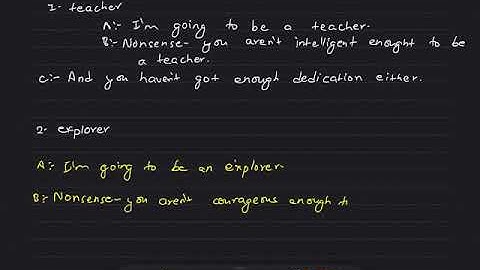 1- teacher
A:- I'm going to be a teacher.
B:- Nonsense- you aren't intelligent enought to be
a teacher.
C:- And you haven't got enough dedication either.
2- explorer
A:- I'm going to be an explorer.
B:- Nonsense- you aren't courageous enough t